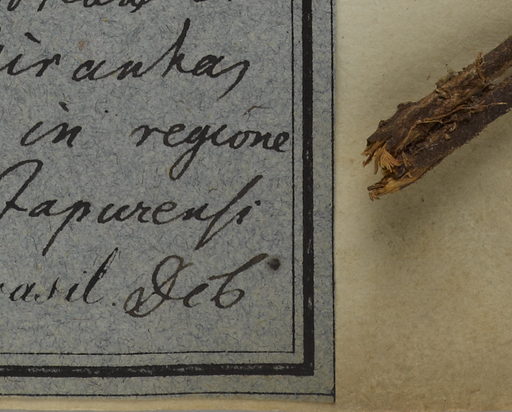 irankas
in regione
Japurensi
rasil. Deb